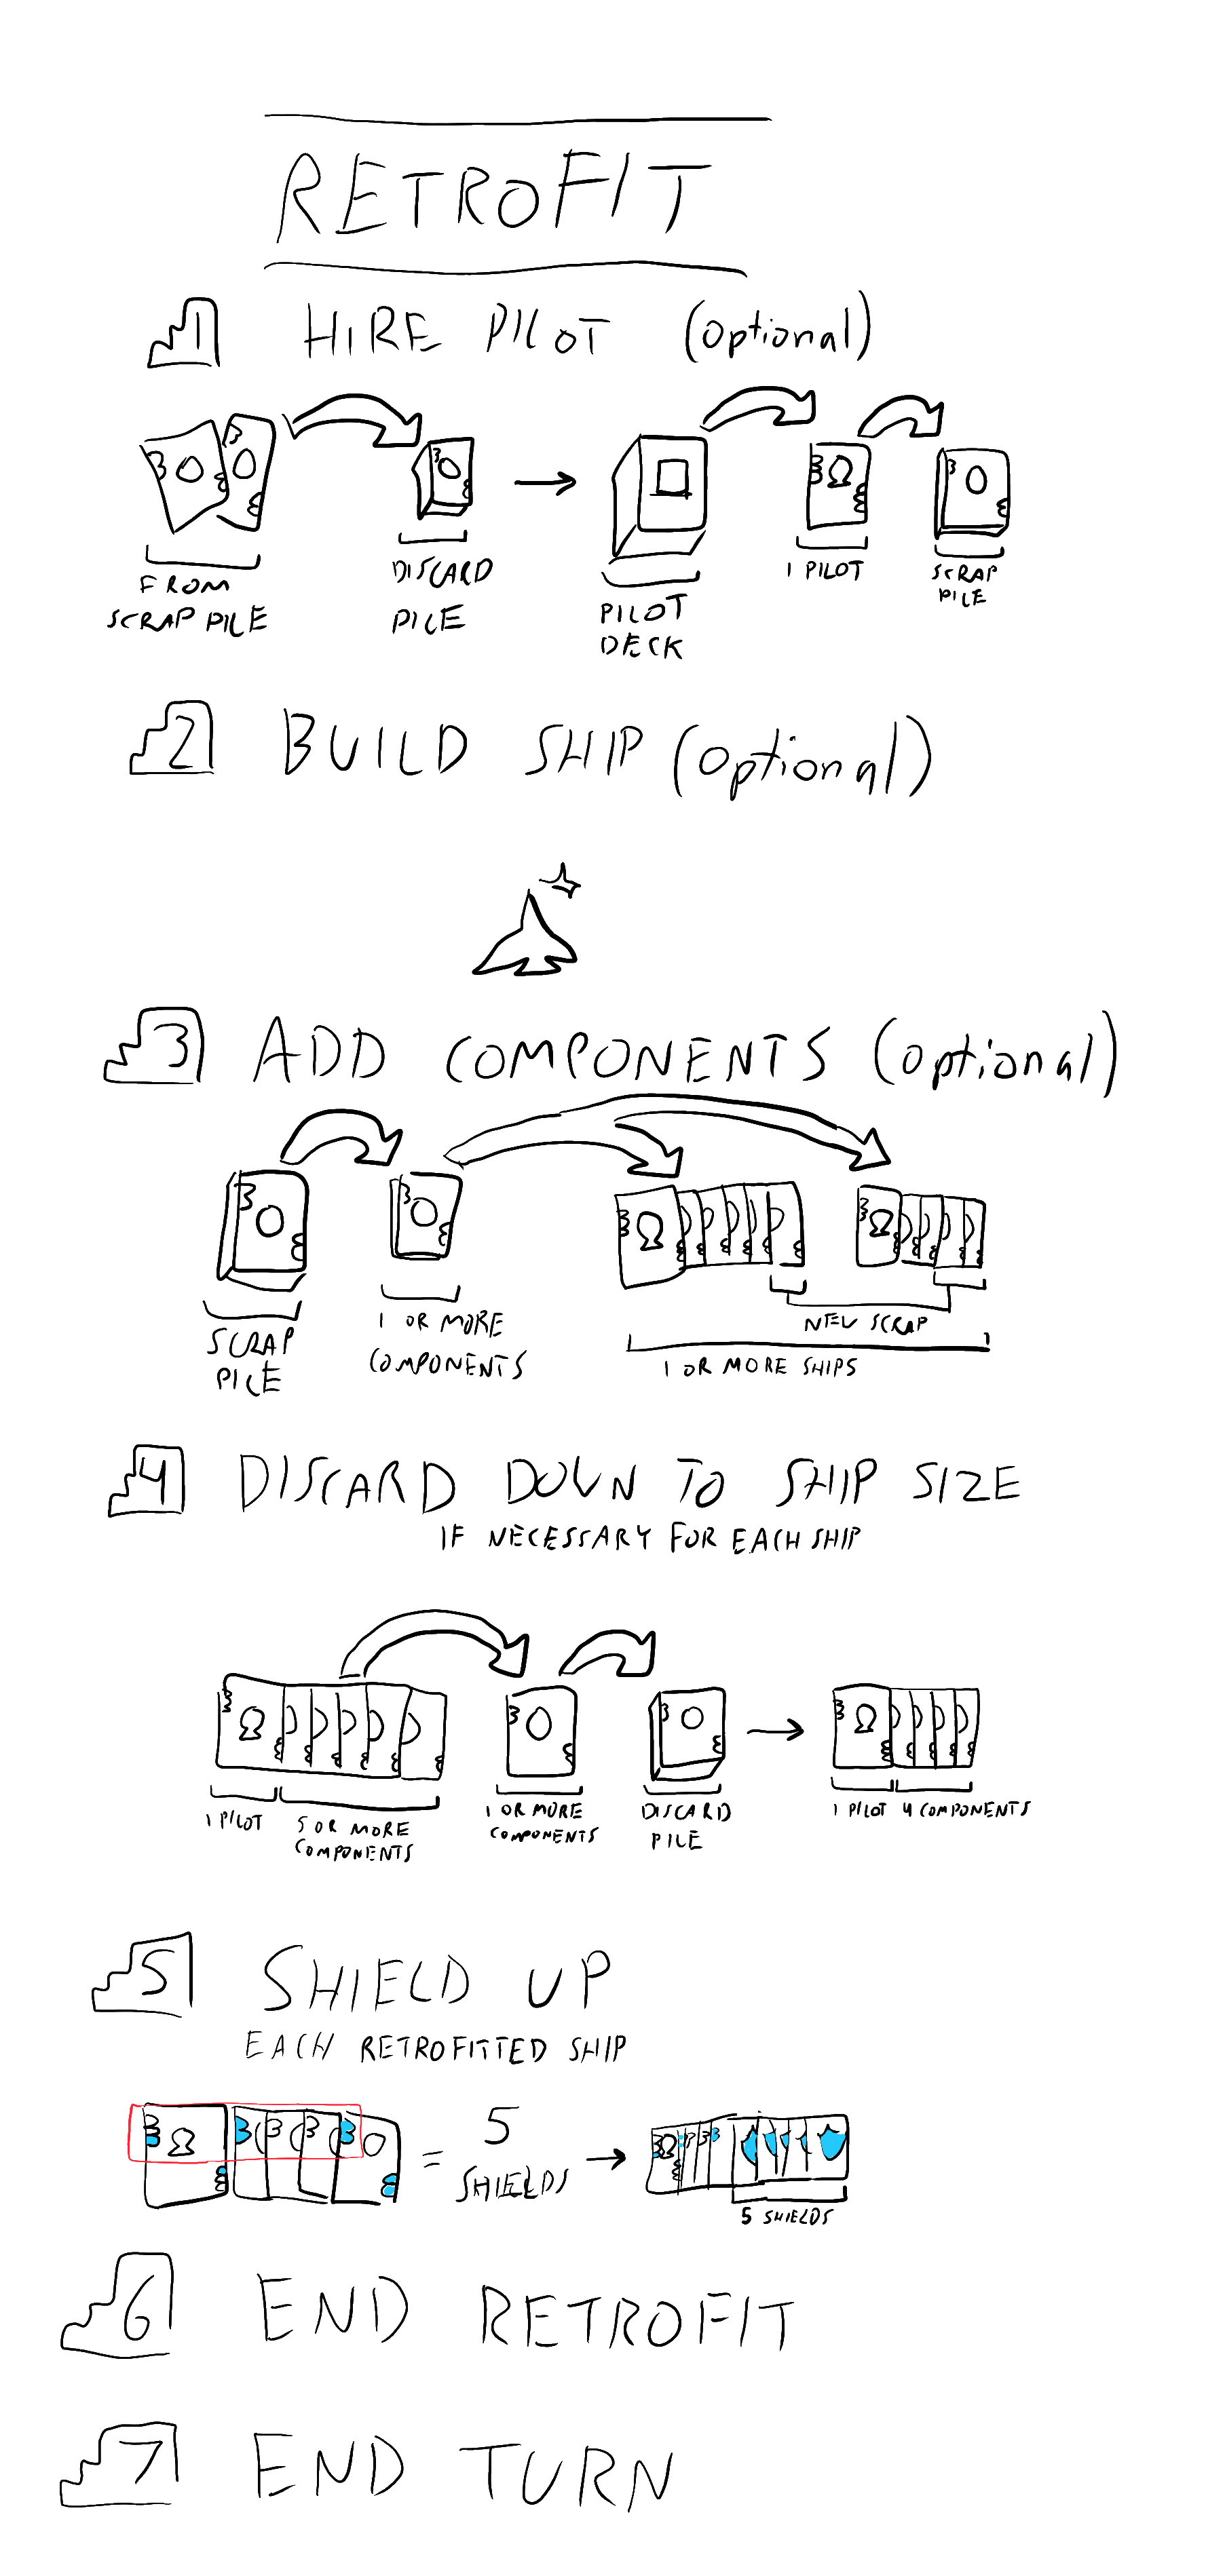 RETROFIT
1 HIRE PILOT (optional)
FROM
SCRAP PILE
DISCARD
PILE
PILOT
DECK
1 PILOT
SCRAP
PILE
2 BUILD SHIP (optional)
3 ADD COMPONENTS (optional)
SCRAP
PILE
1 OR MORE
COMPONENTS
NEW SCRAP
1 OR MORE SHIPS
4 DISCARD DOWN TO SHIP SIZE
IF NECESSARY FOR EACH SHIP
1 PILOT
5 OR MORE
COMPONENTS
1 OR MORE
COMPONENTS
DISCARD
PILE
1 PILOT 4 COMPONENTS
5 SHIELD UP
EACH RETROFITTED SHIP
= 5
SHIELDS
5 SHIELDS
6 END RETROFIT
7 END TURN